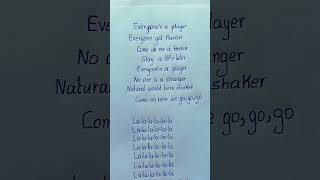 Everyone's a player
Everyone got flavour
Come do me a favour
Stay a little later
Everyone's a player
No one is a stranger
Natural world turn shaker
Come on here we go, go, go
La-la-la-la-la-la
La-la-la-la-la-la
La-la-la-la-la-la
La-la-la-la-la-la
La-la-la-la-la-la
La-la-la-la-la-la
La-la-la-la-la-la